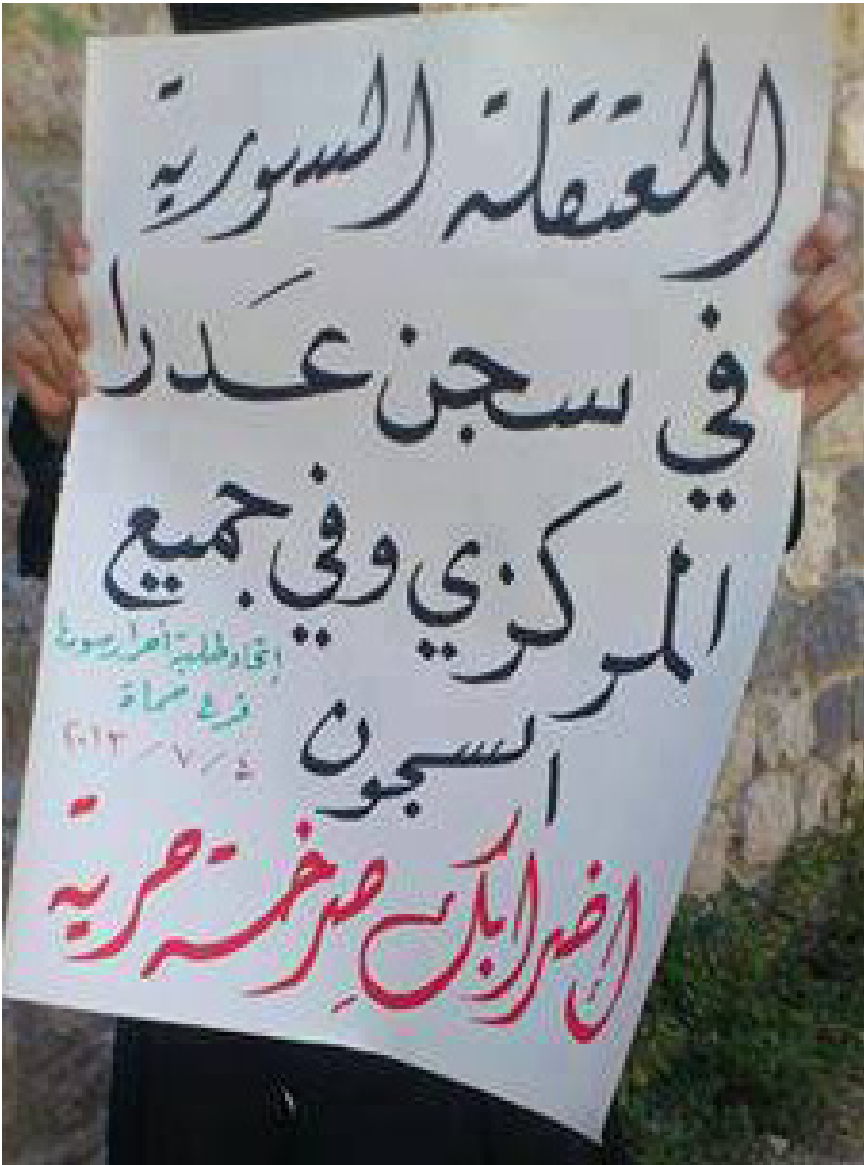 المعتقلة السورية
في سجن عَدرا
المركزي وفي جميع
السجون
إتحاد طلبة أحرار سوريا
فرع حماة
٤ / ٧ / ٢٠١٣
إضرابكِ صرخة حرية